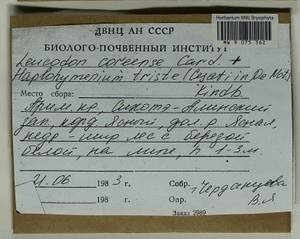 Herbarium MW, Bryophyta
MW 9 075 362
ДВНЦ АН СССР
БИОЛОГО-ПОЧВЕННЫЙ ИНСТИТУТ
Leucodon coreense Card. +
Haplohymenium triste (Cesati in De Not.)
Kindb.
Место сбора:
Прим. кр., Сихотэ-Алинский
зап., корд. Ясный, дол. р.
кедр.- шир. лес с березой
белой, на липе, h 1-3 м.
21.06 1983 г. Собр. Черданцева
Опр. В.Я.
Заказ 2989